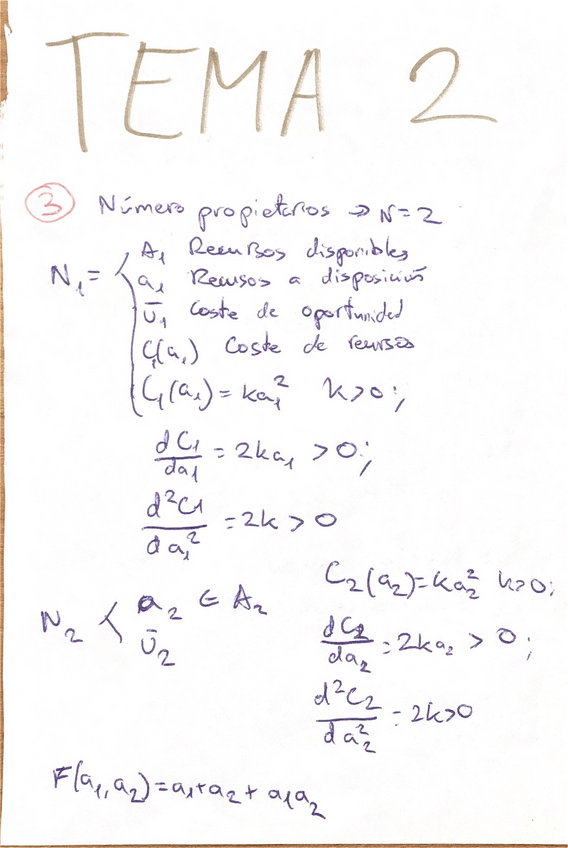 TEMA 2
③ Número propietarios → N=2
N₁ =
A₁ Recursos disponibles
a₁ Recursos a disposición
Ū₁ Coste de oportunidad
C₁(a₁) Coste de recursos
C₁(a₁) = ka₁² k>0;
dC₁/da₁ = 2ka₁ >0;
d²C₁/da₁² = 2k > 0
N₂
a₂ ∈ A₂
Ū₂
C₂(a₂)=ka₂² k>0;
dC₂/da₂ = 2ka₂ > 0;
d²C₂/da₂² = 2k>0
F(a₁,a₂)=a₁+a₂+ a₁a₂